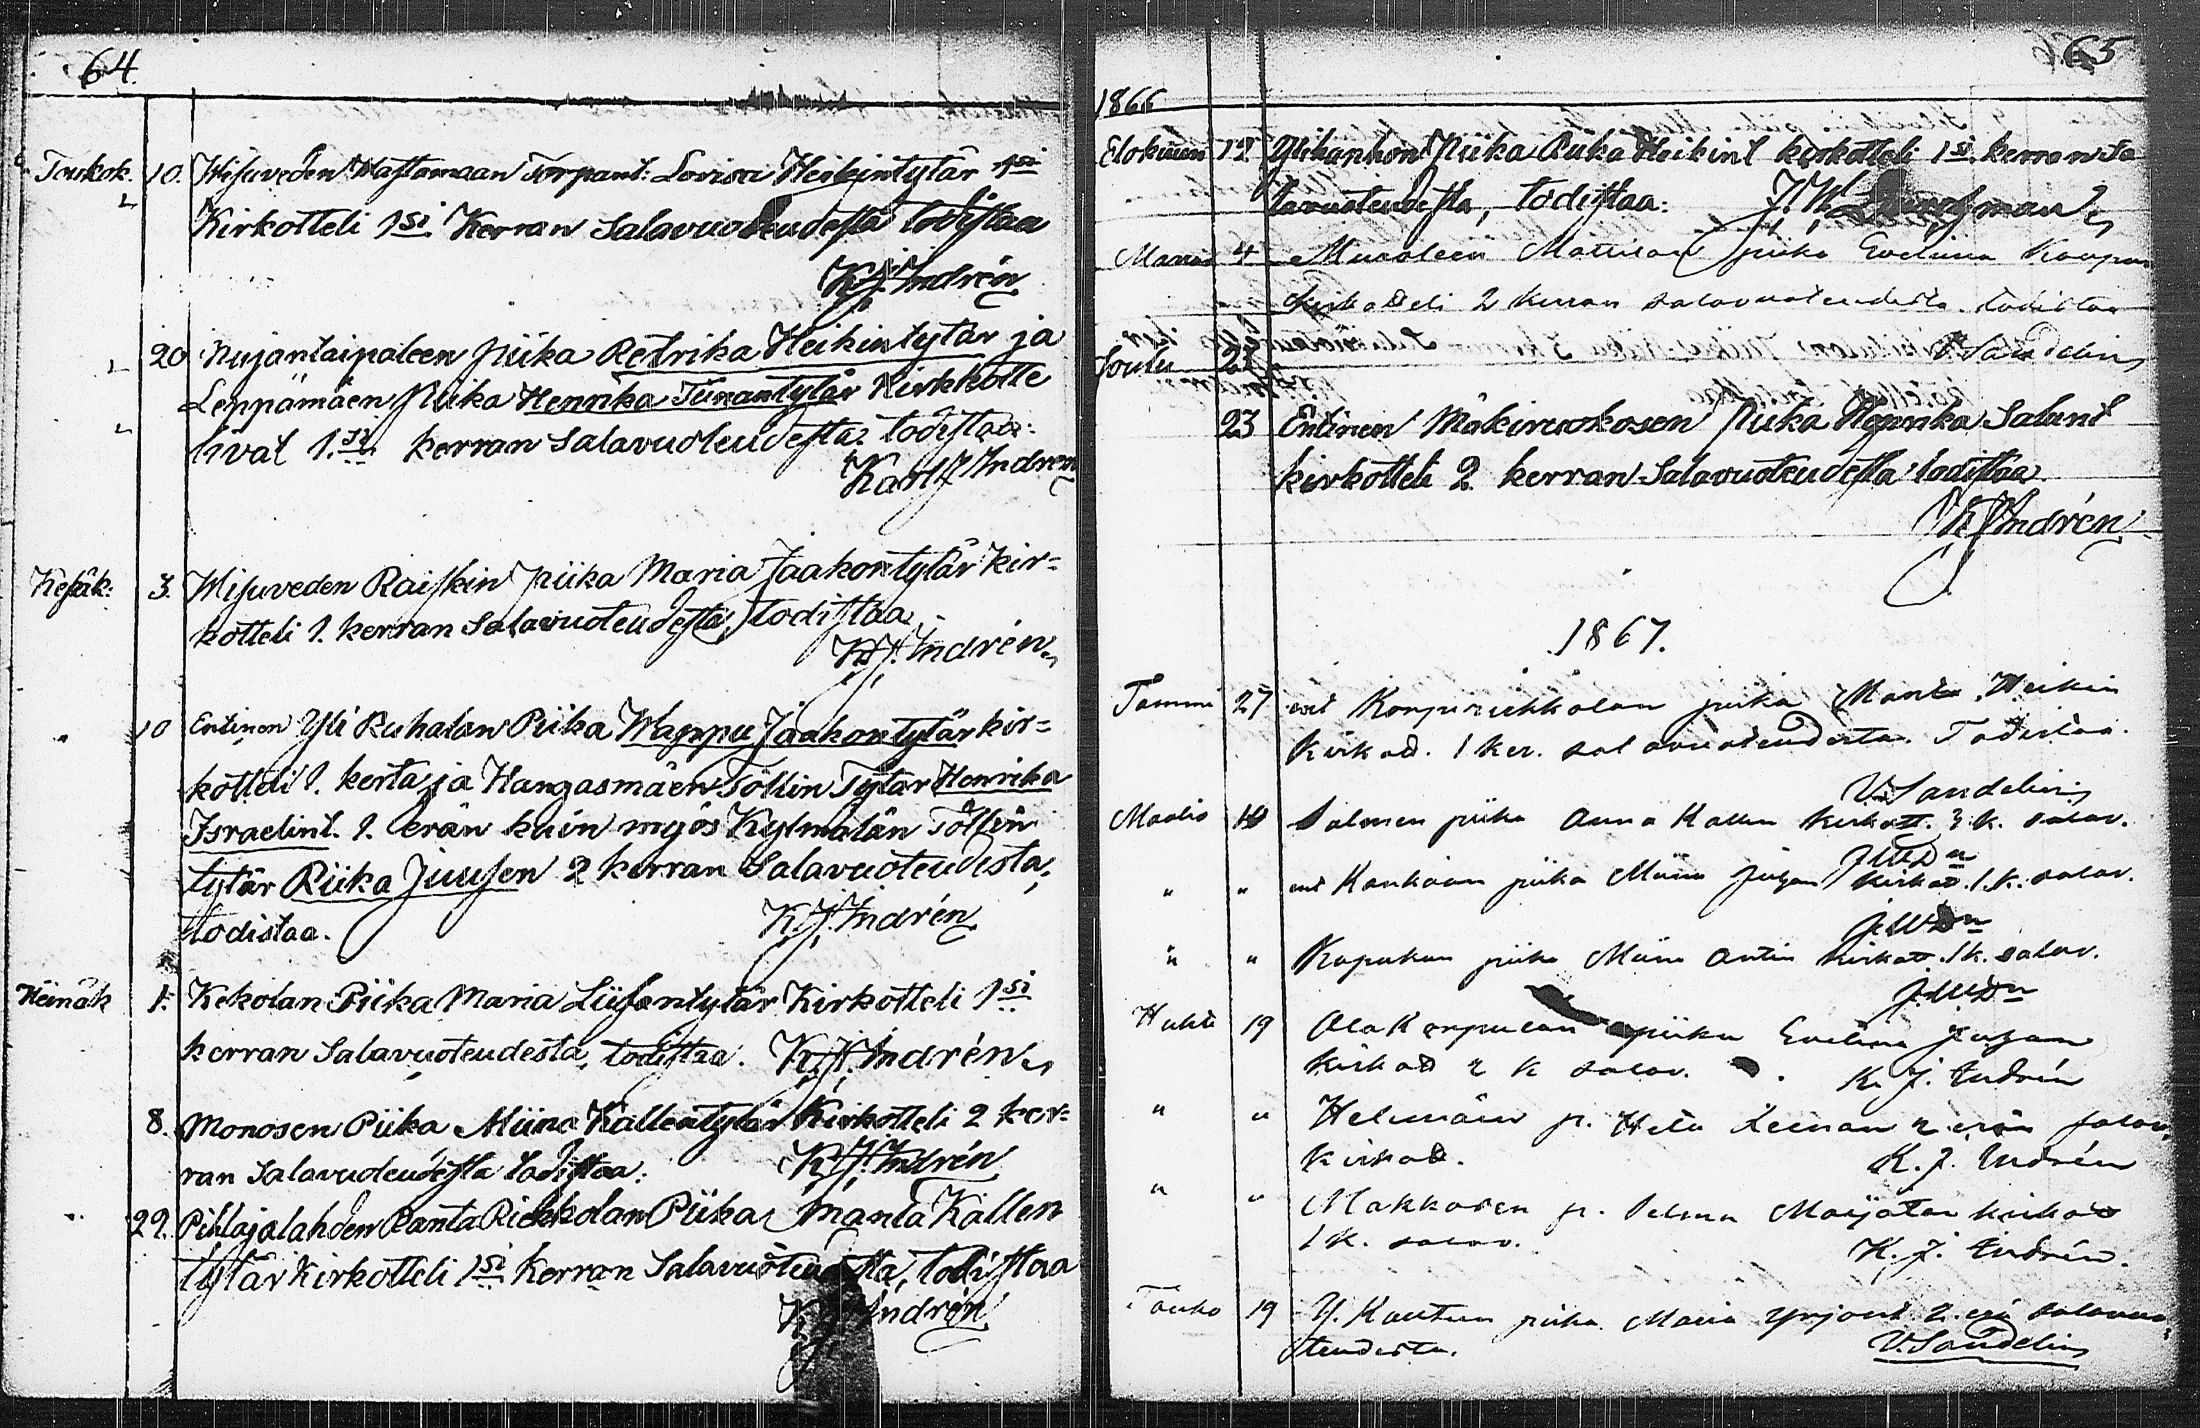 64
Toukok. 10. Wisuveden Mastomaan Torpant. Lovisa Heikintytär 1si
Kirkotteli 1si Kerran Salavuoteudesta todistaa
K.J. Indrén
20. Kujanlaipaleen Piika Retrika Heikintytär ja
Leppämäen Piika Henrika Tiinantytär Kirkkotte
livat 1.si kerran Salavuoteudesta todistaa:
Karl J Indren
Kesäk: 3. Wisuveden Raiskin Piika Maria Jaakontytär kir=
kotteli 1. kerran Salavuoteudesta, todistaa
K.J. Indrén
10 Entinen Yli Ruhalan Piika Wappu Jaakontytär kir=
kotteli 1. kerta ja Hangasmäen Töllin Tytär Henrika
Israelint. 1. erän kuin myös Kylmälän Töllin
tytär Riika Juusen 2 kerran Salavuoteudesta,
todistaa.
K.J. Indrén
Heinäk 1. Kekolan Piika Maria Liisantytär Kirkotteli 1si
kerran Salavuoteudesta, todistaa. K.J. Indrén
8. Monosen Piika Miina Kallentytär Kirkotteli 2 ker=
ran Salavuoteudesta todistaa: K.J. Indrén
29. Pihlajalahden Ranta Riekkolan Piika Manta Kallen
tytär Kirkotteli 1si Kerran Salavuoteudesta, todistaa
K.J. Indrén
65
1866
Elokuun 12 Ylihanhon Piika Riika Heikint kirkotteli 1si kerran Sa
lavuoteudesta, todistaa: J. W.
Marras 4 Muroleen Mattilan piika Eveliina Kaapun
kirkotteli 2 kerran salavuoteudesta todistaa
V Sandelin
Joulu 23
23 Entinen Mäkiruokosen Piika Henrika Salunt
kirkotteli 2 kerran Salavuoteudesta todistaa
K J Indrén
1867.
Tammi 27 ent piika Manta Heikin
kirkott. 1 ker. salavuoteudesta. Todistaa.
V. Sandelin
Maalis 10 Salmen piika Anna Kallen kirkott. 3 k. salav.
J.W.Dn
" " ent Kankaan piika Miina Juhan kirkott. 1 k. salav.
J.W.Dn
" " Kapakan piika Miina Antin kirkott. 1 k. salav.
J.W.Dn
Huhti 19 Ala Karpulan piika Evelina Juhan
kirkott 2 k salav. K. J. Indrén
" " p. Heta Leenan 2 erän salav.
kirkott. K. J. Indrén
" " Makkosen p. Selma Maijatar kirkott
1 k. salav. K. J. Indrén.
Touko 19 Y. Kautun piika Maria Yrjönt. 2. erä salavuo=
teudesta. V. Sandelin